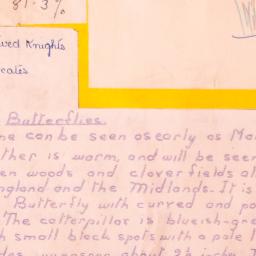 81.3%
ved Knights
cates
Butterflies.
ne can be seen as early as Ma
ther is warm, and will be seen
en woods and clover fields al
ngland and the Midlands. It is
Butterfly with curved and po
The catterpillar is blueish-gre
h small black spots with a pale l
about 2½ inche